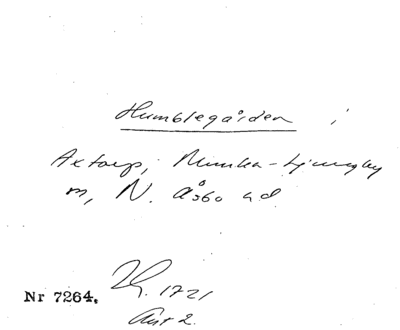 Humblegården i
Axtorp, Munka-Ljungby
sn, N. Åsbo hd
Nr 7264. 1721
Ant 2.